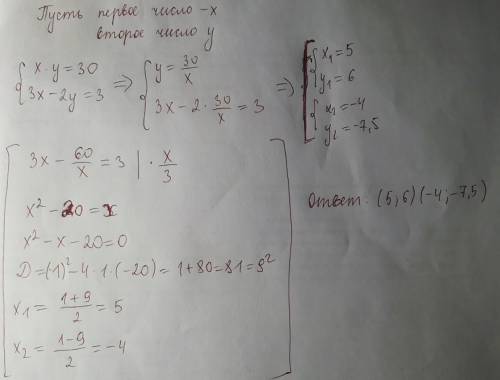 Пусть первое число - x
второе число y
{ x · y = 30
3x - 2y = 3
=> { y = 30/x
3x - 2 · 30/x = 3
=> [ { x₁ = 5
y₁ = 6
{ x₂ = -4
y₂ = -7,5
3x - 60/x = 3 | · x/3
x² - 20 = x
x² - x - 20 = 0
D = (-1)² - 4 · 1 · (-20) = 1 + 80 = 81 = 9²
x₁ = (1+9)/2 = 5
x₂ = (1-9)/2 = -4
Ответ: (5; 6) (-4; -7,5)